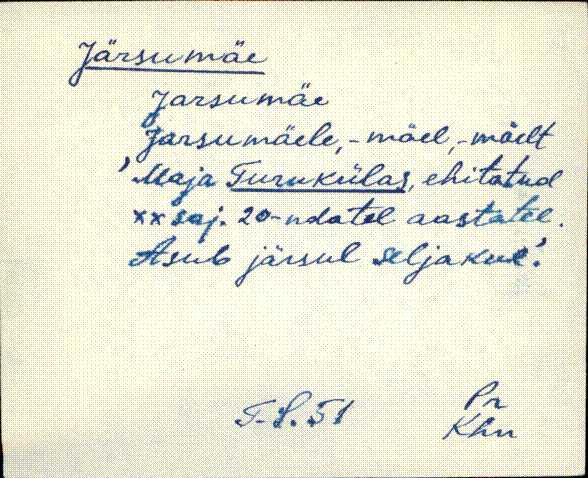 Järsumäe
Jarsumäe
Jarsumäele, -mäel, -mäelt
'Maja Turukülas, ehitatud
XX saj. 20-ndatel aastatel.
Asub järsul seljakul'.
T-S. 51
Pn
Khn